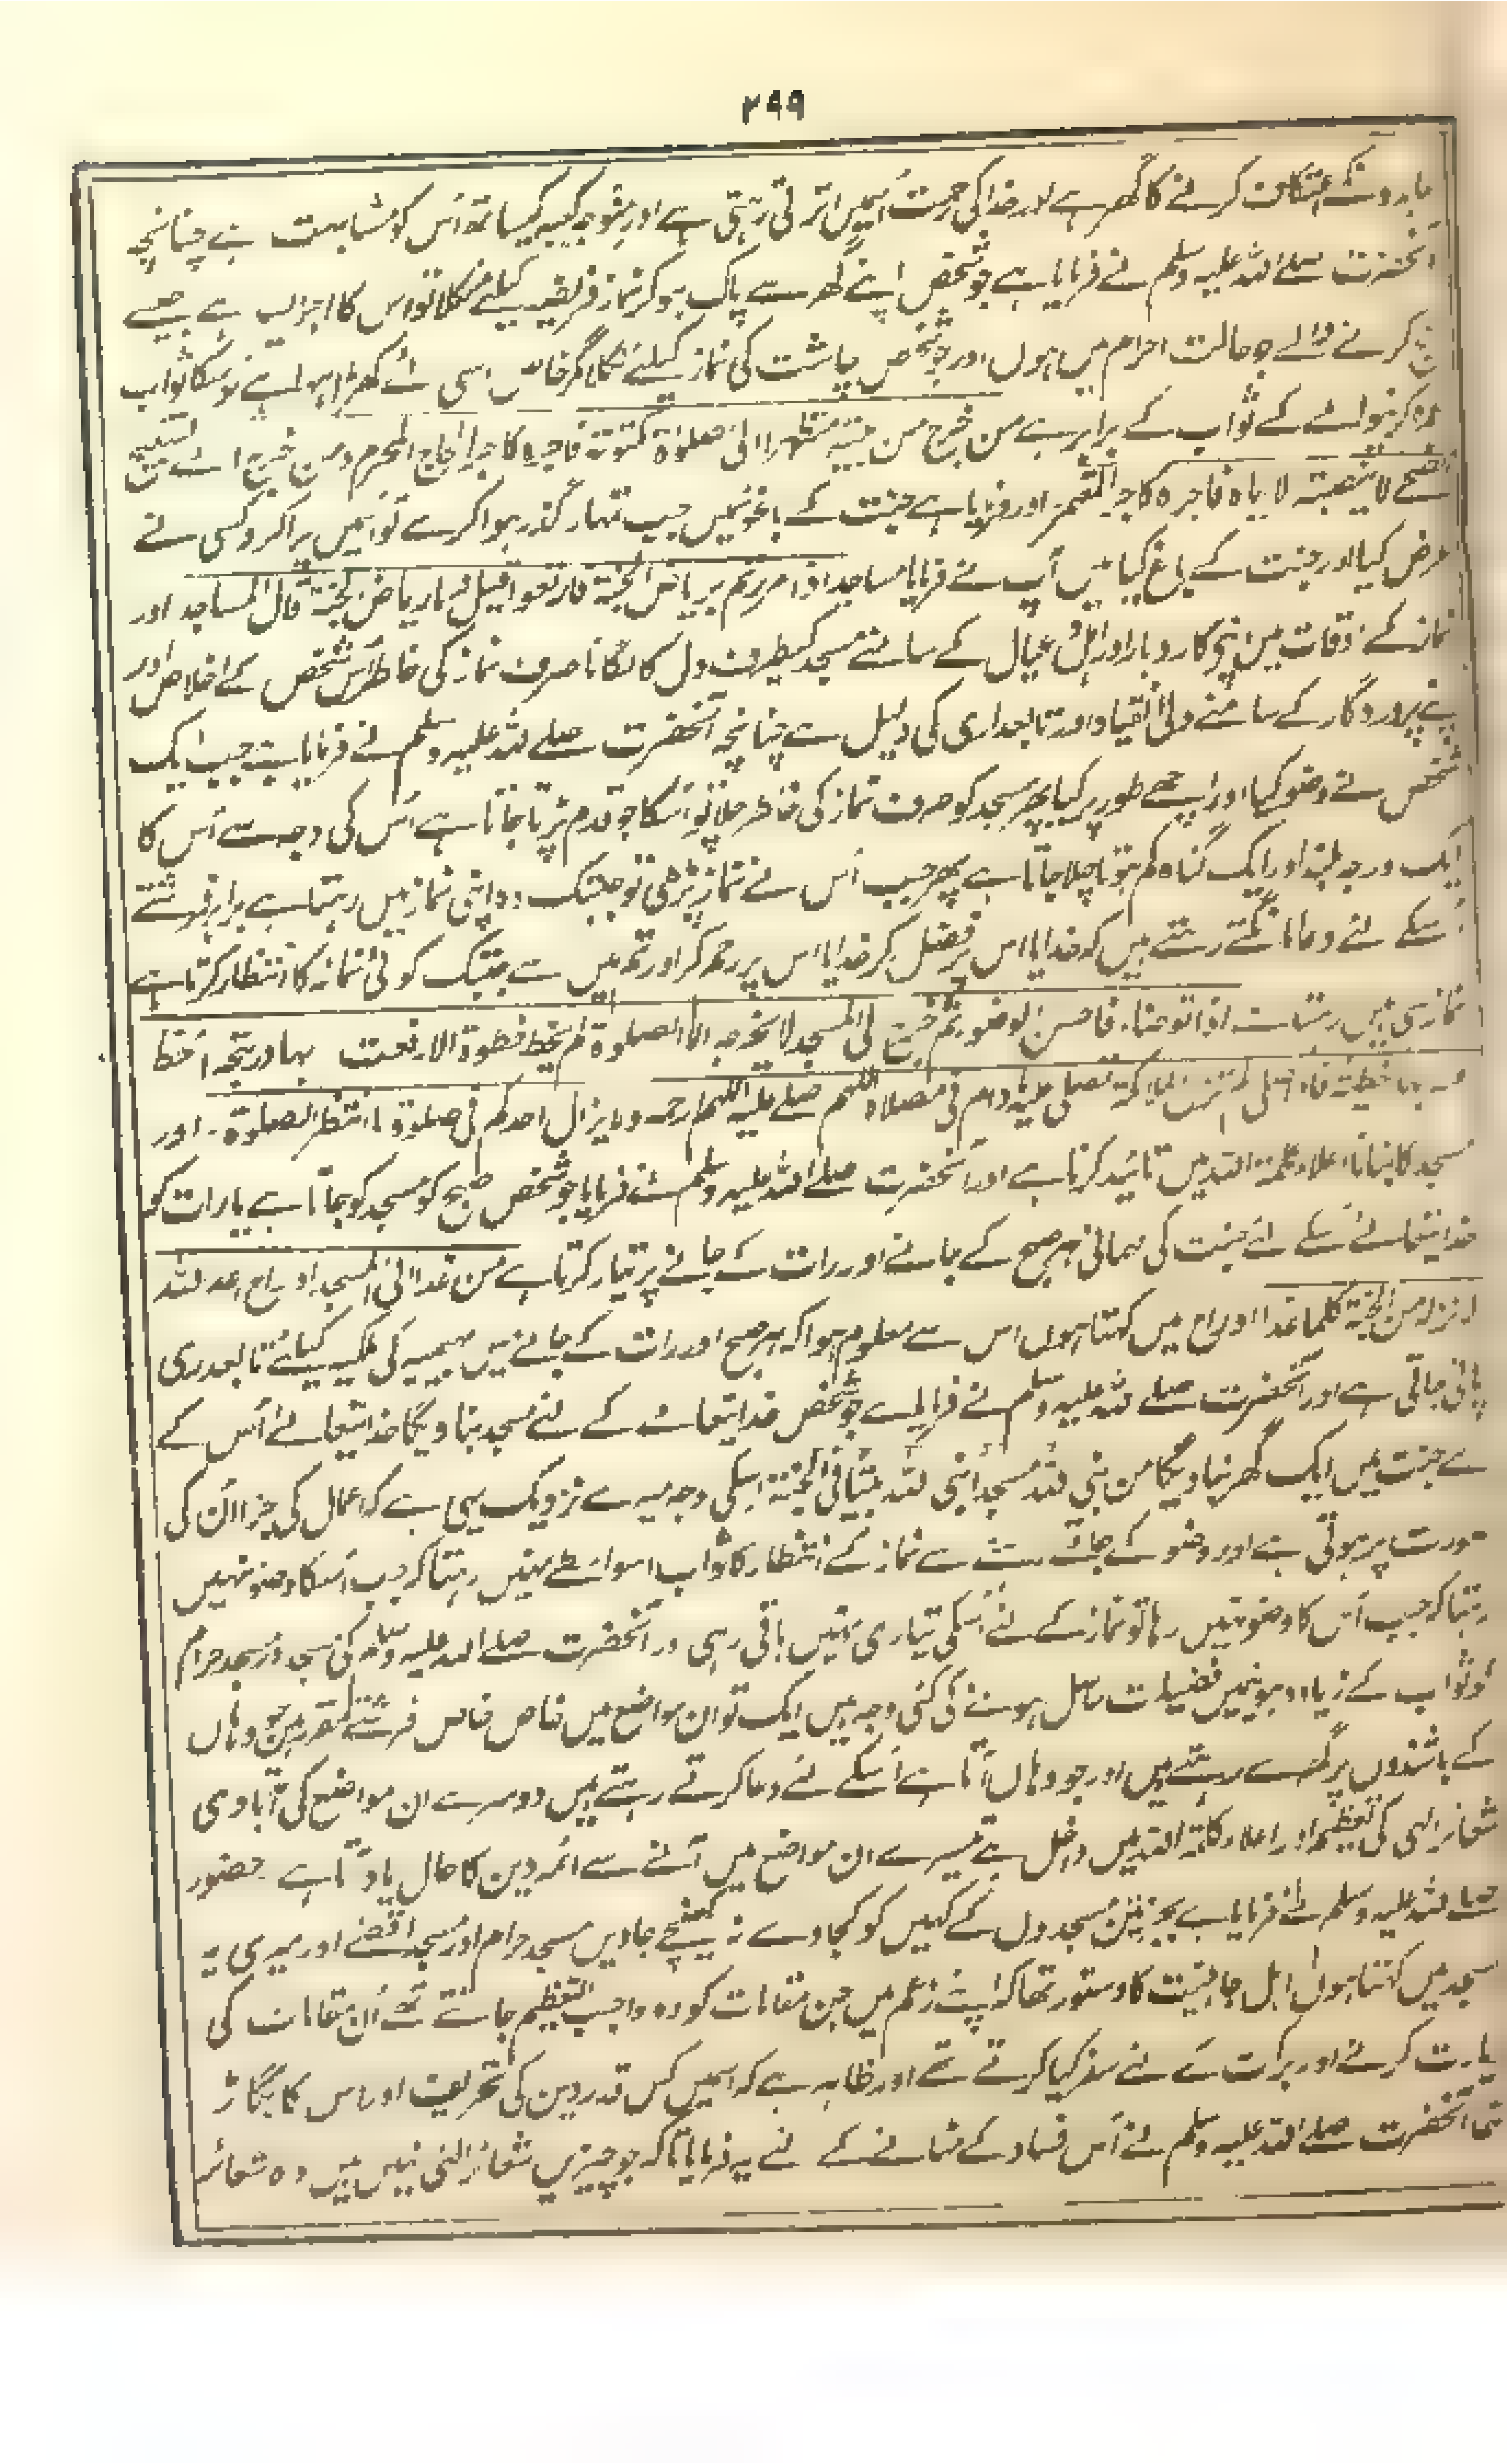 ۲۹۹
کے اعتکاف کرنے کا گھر ہے اور خدا کی رحمت اسمیں اترتی رہتی ہے اور من وجہ کعبہ کیساتھ اُس کو مشابہت ہے چنانچہ
آنحضرت صلے اللہ علیہ وسلم نے فرمایا ہے جو شخص اپنے گھر سے پاک ہو کر نماز فریضہ کیلئے نکلا تو اس کا اجر ایسا ہے جیسے
حج کرنے والے جو حالت احرام میں ہوں اور جو شخص چاشت کی نماز کیلئے نکلا گر خاص اسی لئے کھڑا ہوا ہے تو اسکا ثواب
عمرہ کرنیوالے کے ثواب کے برابر ہے من خرج من بیتہ متطہرا الی صلوٰۃ مکتوبۃ فاجرہ کاجر الحاج المحرم ومن خرج الے تسبیح
الضحے لا ینصبہ الا ایاہ فاجرہ کاجر المعتمر اور فرمایا ہے جنت کے باغونمیں جب تمہارا گذر ہوا کرے تو اسمیں چرا کرو کسی نے
عرض کیا اور جنت کے باغ کیا ہیں آپ نے فرمایا مساجد اذا مررتم بریاض الجنۃ فارتعوا قیل وما ریاض الجنۃ قال المساجد اور
نماز کے اوقات میں اپنی کاروبار اور اہل عیال کے سامنے مسجد کیطرف دل کا لگانا صرف نماز کی خاطر اُس شخص کے اخلاص اور
اپنے پروردگار کے سامنے دلی انقیاد اور تابعداری کی دلیل ہے چنانچہ آنحضرت صلے اللہ علیہ وسلم نے فرمایا ہے جب ایک
شخص نے وضو کیا اور اچھے طور پر کیا پھر مسجد کو صرف نماز کی خاطر چلا تو اسکا جو قدم پڑتا جاتا ہے اُس کی وجہ سے اُس کا
ایک درجہ بلند اور ایک گناہ کم ہوتا چلا جاتا ہے پھر جب اُس نے نماز پڑھی تو جبتک وہ اپنی نماز میں رہتا ہے برابر فرشتے
اُسکے لئے دعا مانگتے رہتے ہیں کہ خدایا اس پر فضل کر خدایا اس پر رحم کر اور تم میں سے جبتک کوئی نماز کا انتظار کرتا ہے
نماز ہی میں رہتا ہے اذا توضاء فاحسن الوضو ثم خرج الی المسجد لا یخرجہ الا الصلوۃ لم یخط خطوۃ الا رفعت بہا درجۃ و حط
عنہ بہا خطیئۃ فاذا صلی لم تزل الملائکۃ تصلی علیہ مادام فی مصلاہ اللہم صلے علیہ اللہم ارحمہ ولا یزال احدکم فی صلوۃ ما انتظر الصلوۃ۔ اور
مسجد کا بنانا اعلاء کلمۃ اللہ میں تائید کرتا ہے اور آنحضرت صلے اللہ علیہ وسلم نے فرمایا جو شخص صبح کو مسجد کو جاتا ہے یا رات کو
خدا تیعالے اُسکے لئے جنت کی مہمانی ہر صبح کے جانے اور رات کے جانے پر تیار کرتا ہے من غدا الی المسجد او راح اعد اللہ
لہ نزلہ من الجنۃ کلما غدا او راح میں کہتا ہوں اس سے معلوم ہوا کہ ہر صبح اور رات کے جانے میں بہیمیہ کی ملکیہ کیلئے تابعدری
پائی جاتی ہے اور آنحضرت صلے اللہ علیہ وسلم نے فرمایا ہے جو شخص خدا تیعالے کے لئے مسجد بناویگا خدا تیعالے اُس کے
لئے جنت میں ایک گھر بناویگا من بنی للہ مسجدا بنی اللہ لہ بیتا فی الجنۃ اسکی وجہ میرے نزدیک یہی ہے کہ اعمال کی جزا اُن کی
صورت پر ہوتی ہے اور وضو کے جاتے رہنے سے نماز کے انتظار کا ثواب اسواسطے نہیں رہتا کہ جب اُسکا وضو نہیں
رہتا کہ جب اُس کا وضو نہیں رہا تو نماز کے لئے اُسکی تیاری نہیں باقی رہی اور آنحضرت صلے اللہ علیہ وسلم کی مسجد اور مسجد حرام
کو ثواب کے زیادہ ہونیمیں فضیلت حاصل ہونے کی کئی وجہ ہیں ایک تو ان مواضع میں خاص خاص فرشتے مقرر ہیں جو وہاں
کے باشندوں پر گھرے رہتے ہیں اور جو وہاں آتا ہے اُسکے لئے دعا کرتے رہتے ہیں دوسرے ان مواضع کی آبادی
شعائر الہی کی تعظیم اور اعلاء کلمۃ اللہ میں داخل ہے تیسرے ان مواضع میں آنے سے ائمہ دین کا حال یاد آتا ہے حضور
صلے اللہ علیہ وسلم نے فرمایا ہے بجز تین مسجدوں کے کہیں کو کجاوے نہ کھینچے جاویں مسجد حرام اور مسجد اقصے اور میری یہ
مسجد میں کہتا ہوں اہل جاہلیت کا دستور تھا کہ اپنے زعم میں جن مقامات کو وہ واجب التعظیم جانتے تھے اُن مقامات کی
زیارت کرنے اور برکت کے لئے سفر کیا کرتے تھے اور ظاہر ہے کہ اسمیں کس قدر دین کی تحریف اور اس کا بگاڑ
آنحضرت صلے اللہ علیہ وسلم نے اُس فساد کے مٹانے کے لئے یہ فرمایا تاکہ جو چیزیں شعائر الٰہی نہیں ہیں وہ شعائر